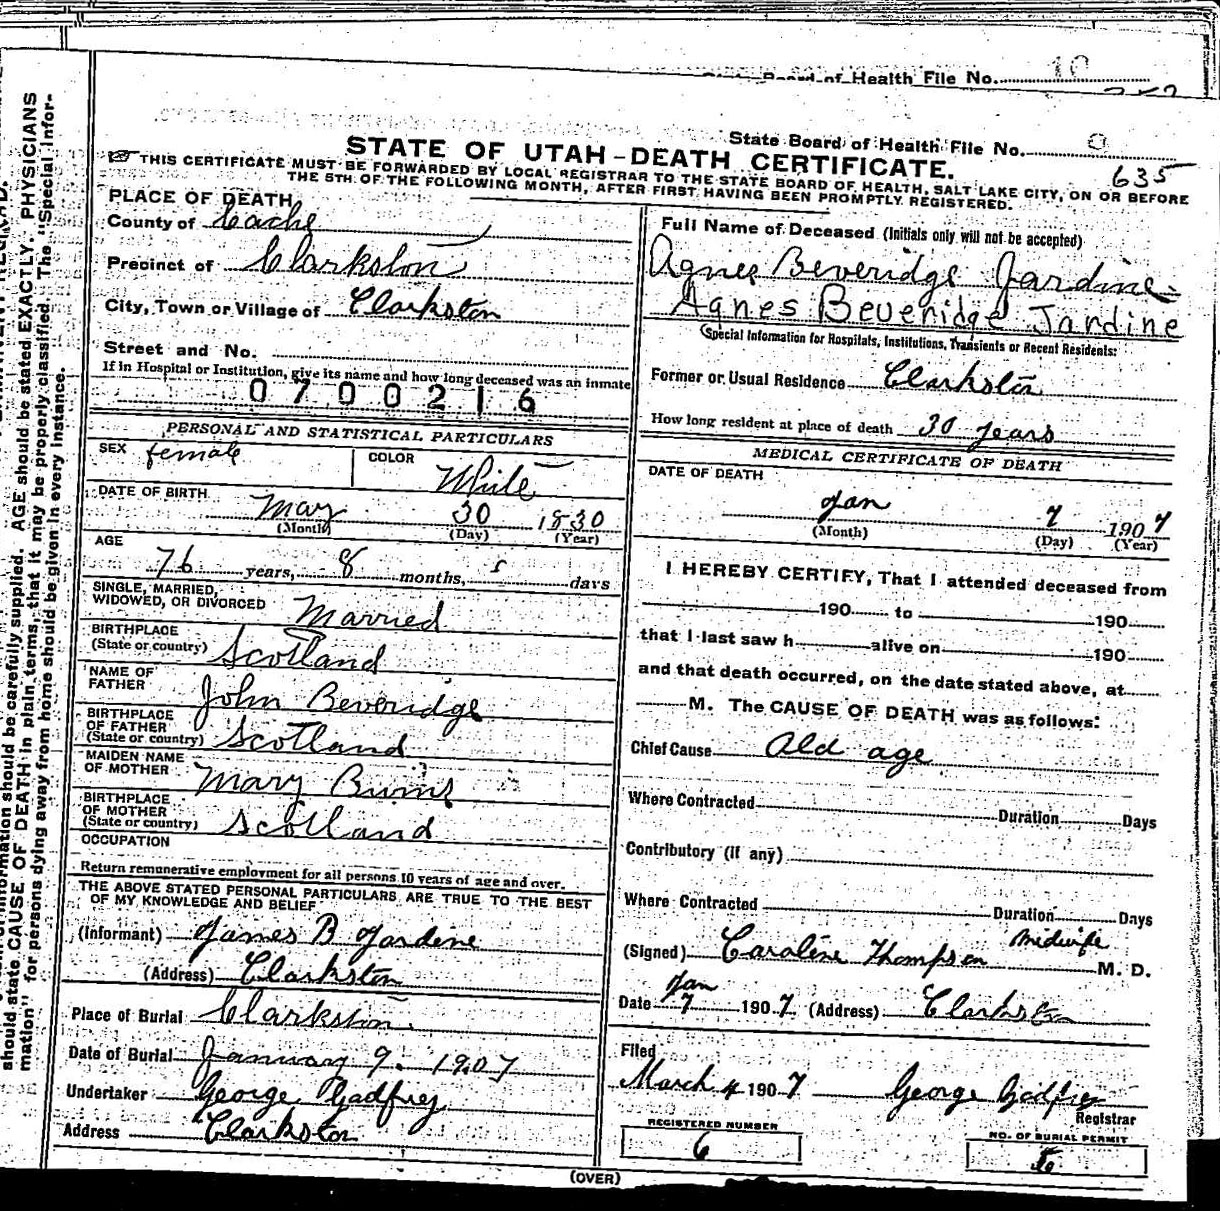 State Board of Health File No. 10
State Board of Health File No.
635
STATE OF UTAH–DEATH CERTIFICATE.
THIS CERTIFICATE MUST BE FORWARDED BY LOCAL REGISTRAR TO THE STATE BOARD OF HEALTH, SALT LAKE CITY, ON OR BEFORE
THE 5TH OF THE FOLLOWING MONTH, AFTER FIRST HAVING BEEN PROMPTLY REGISTERED.
PLACE OF DEATH
County of Cache
Precinct of Clarkston
City, Town or Village of Clarkston
Street and No.
If in Hospital or Institution, give its name and how long deceased was an inmate
0700216
PERSONAL AND STATISTICAL PARTICULARS
SEX female COLOR White
DATE OF BIRTH May 30 1830
(Month) (Day) (Year)
AGE
76 years, 8 months, days
SINGLE, MARRIED,
WIDOWED, OR DIVORCED Married
BIRTHPLACE
(State or country) Scotland
NAME OF
FATHER John Beveridge
BIRTHPLACE
OF FATHER
(State or country) Scotland
MAIDEN NAME
OF MOTHER Mary
BIRTHPLACE
OF MOTHER
(State or country) Scotland
OCCUPATION
Return remunerative employment for all persons 10 years of age and over.
THE ABOVE STATED PERSONAL PARTICULARS ARE TRUE TO THE BEST
OF MY KNOWLEDGE AND BELIEF
(Informant) James B Jardine
(Address) Clarkston
Place of Burial Clarkston.
Date of Burial January 9. 1907
Undertaker George Godfrey
Address Clarkston
Full Name of Deceased (Initials only will not be accepted)
Agnes Beveridge Jardine
Agnes Beveridge Jardine
(Special Information for Hospitals, Institutions, Transients or Recent Residents:
Former or Usual Residence Clarkston
How long resident at place of death 30 years
MEDICAL CERTIFICATE OF DEATH
DATE OF DEATH
Jan 7 1907
(Month) (Day) (Year)
I HEREBY CERTIFY, That I attended deceased from
190 to 190
that I last saw h alive on 190
and that death occurred, on the date stated above, at
M. The CAUSE OF DEATH was as follows:
Chief Cause Old age
Where Contracted Duration Days
Contributory (if any)
Where Contracted Duration Days
Midwife
(Signed) Caroline Thompson M. D.
Date Jan 7 1907 (Address) Clarkston
Filed
March 4 1907 George Godfrey
Registrar
REGISTERED NUMBER
6
NO. OF BURIAL PERMIT
(OVER)
information should be carefully supplied. AGE should be stated EXACTLY. PHYSICIANS
should state CAUSE OF DEATH in plain terms, that it may be properly classified. The "Special Infor-
mation" for persons dying away from home should be given in every instance.